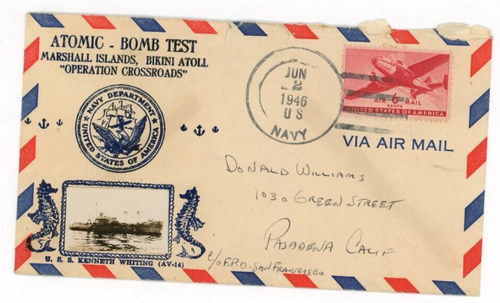 ATOMIC - BOMB TEST
MARSHALL ISLANDS, BIKINI ATOLL
"OPERATION CROSSROADS"
NAVY DEPARTMENT
UNITED STATES OF AMERICA
U. S. S. KENNETH WHITING (AV-14)
JUN
2
1946
U S
NAVY
AIR 6 MAIL
CENTS
UNITED STATES OF AMERICA
VIA AIR MAIL
DONALD WILLIAMS
1030 GREEN STREET
PASADENA CALIF
C/O F.P.O. SAN FRANCISCO